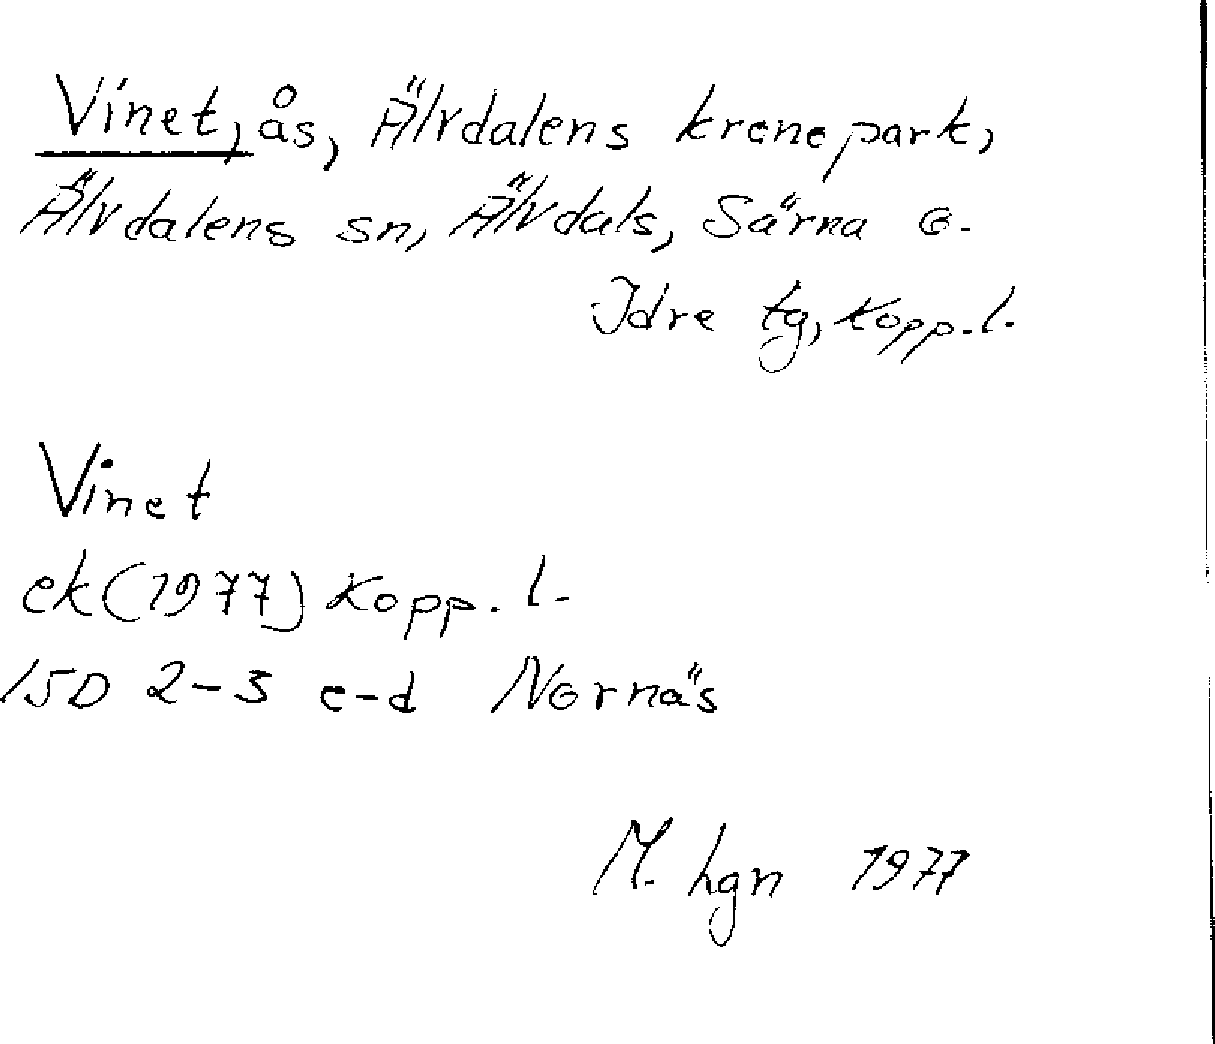 Vinet, ås, Älvdalens kronopark,
Älvdalens sn, Älvdals, Särna o.
Idre tg, Kopp. l.
Vinet
ek (1977) Kopp. l.
15D 2-3 c-d Nornäs
M. hgn 1977